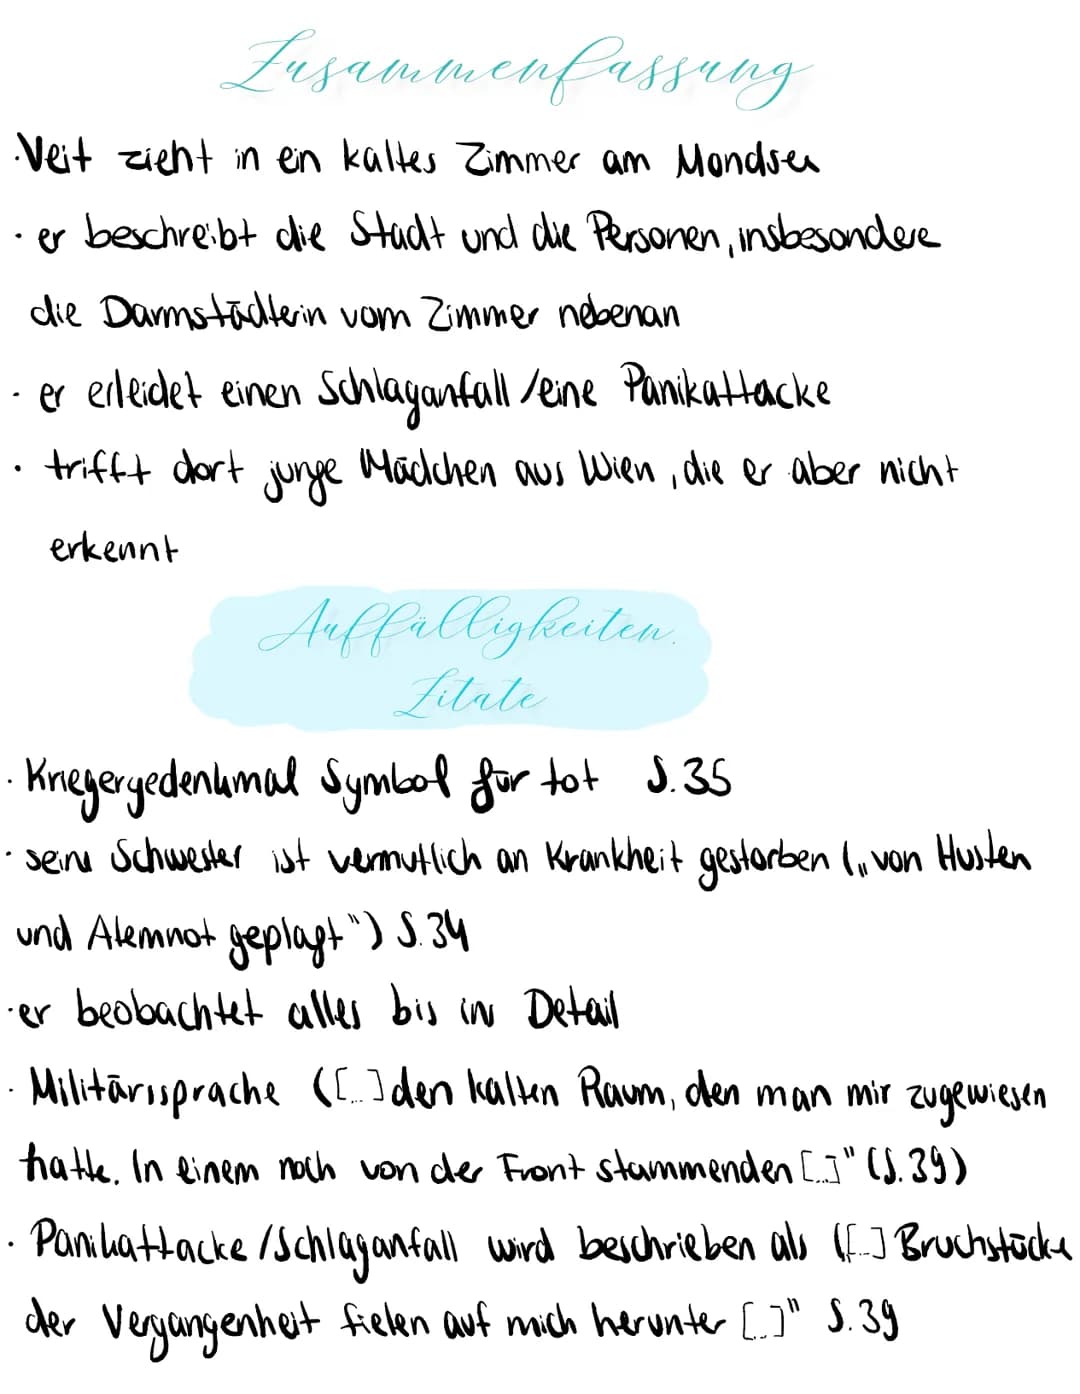 Zusammenfassung
· Veit zieht in ein kaltes Zimmer am Mondsee
· er beschreibt die Stadt und die Personen, insbesondere
die Darmstädterin vom Zimmer nebenan
· er erleidet einen Schlaganfall / eine Panikattacke
· trifft dort junge Mädchen aus Wien, die er aber nicht
erkennt
Auffälligkeiten.
Zitate
· Kriegergedenkmal Symbol für tot S.35
· seine Schwester ist vermutlich an Krankheit gestorben („von Husten
und Atemnot geplagt") S.34
· er beobachtet alles bis ins Detail
· Militärssprache ([...] den kalten Raum, den man mir zugewiesen
hatte. In einem noch von der Front stammenden [...]" (S.39)
· Panikattacke / Schlaganfall wird beschrieben als ([...] Bruchstücke
der Vergangenheit fielen auf mich herunter [...]" S.39